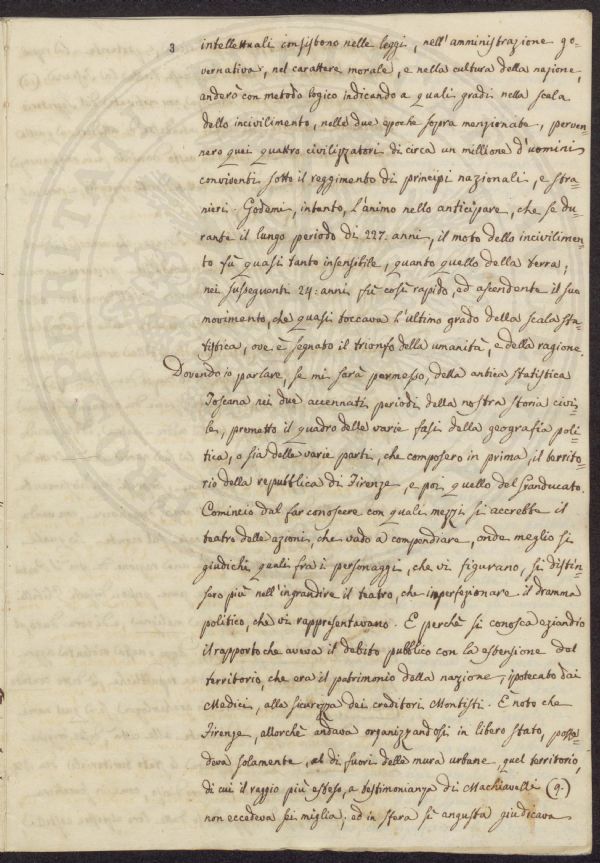 3
intellettuali consistono nelle leggi, nell'amministrazione go=
vernativa, nel carattere morale, e nella cultura della nazione,
anderò con metodo logico indicando a quali gradi nella scala
dello incivilimento, nelle due epoche sopra menzionate, perven=
nero quei quattro civilizzatori di circa un millione d'uomini
conviventi sotto il reggimento di principi nazionali, e stra=
nieri. Godemi, intanto, l'animo nello anticipare, che se du=
rante il lungo periodo di 227. anni, il moto dello incivilimen=
to fù quasi tanto insensibile, quanto quello della terra;
nei susseguenti 24: anni fù così rapido, ed ascendente il suo
movimento, che quasi toccava l'ultimo grado della scala sta=
tistica, ove è segnato il trionfo della umanità, e della ragione.
Dovendo io parlare, se mi sarà permesso, della antica statistica
Toscana nei due accennati periodi della nostra storia civi=
le, premetto il quadro delle varie fasi della geografia poli=
tica, o sia delle varie parti, che composero in prima, il territo=
rio della repubblica di Firenze, e poi quello del Granducato.
Comincio dal far conoscere con quali mezzi si accrebbe il
teatro delle azioni, che vado a compendiare, onde meglio si
giudichi quali fra i personaggi, che vi figurano, si distin=
sero più nell'ingrandire il teatro, che imperfezionare il dramma
politico, che vi rappresentavano. E perchè si conosca eziandio
il rapporto che aveva il debito pubblico con la estensione del
territorio, che era il patrimonio della nazione, ipotecato dai
Medici, alla sicurezza dei creditori Montisti. È noto che
Firenze, allorchè andava organizzandosi in libero stato, posse=
deva solamente, al di fuori delle mura urbane, quel territorio,
di cui il raggio più esteso, a testimonianza di Machiavelli (9.)
non eccedeva sei miglia; ed in sfera sì angusta giudicava